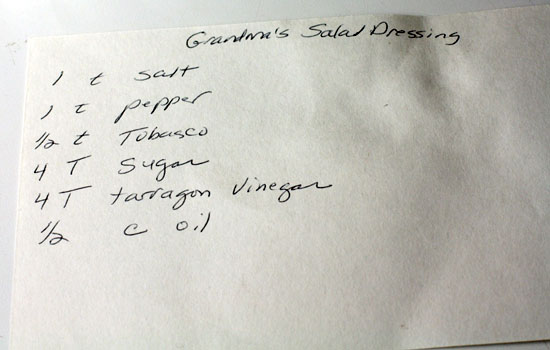 Grandma's Salad Dressing
1 t salt
1 t pepper
1/2 t Tobasco
4 T Sugar
4 T tarragon vinegar
1/2 c oil